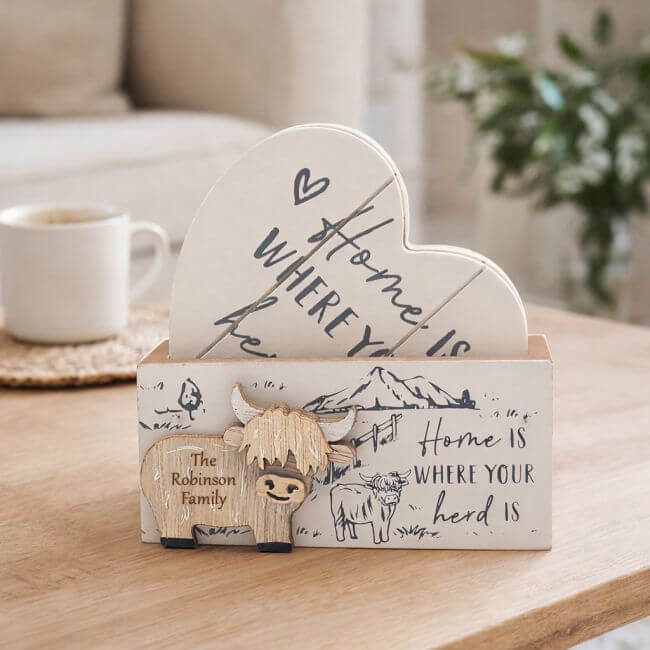 Home IS
WHERE YO
he
IS
Home IS
WHERE YOUR
herd IS
The
Robinson
Family